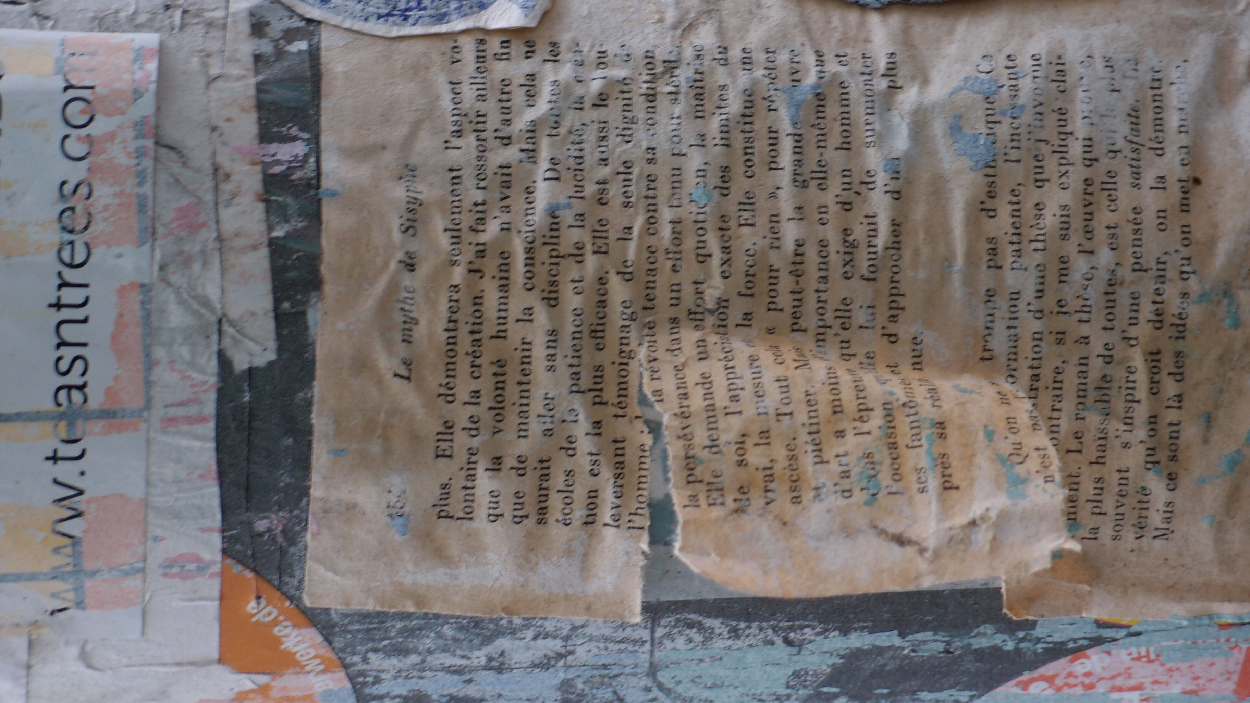 www.teeasntrees.com
Le mythe de Sisyphe
plus. Elle démontrera seulement l'aspect vo-
lontaire de la création. J'ai fait ressortir ailleurs
que la volonté humaine n'avait d'autre fin
que de maintenir la conscience. Mais cela ne
saurait aller sans discipline. De toutes les
écoles de la patience et de la lucidité, la créa-
tion est la plus efficace. Elle est aussi le bou-
leversant témoignage de la seule dignité de
l'homme : la révolte tenace contre sa condition,
la persévérance dans un effort tenu pour stérile.
Elle demande un effort quotidien, la maîtrise
de soi, l'appréciation exacte des limites du
vrai, la mesure et la force. Elle constitue une
ascèse. Tout cela « pour rien », pour répéter
et piétiner. Mais peut-être la grande œuvre
d'art a moins d'importance en elle-même que
dans l'épreuve qu'elle exige d'un homme et
l'occasion qu'elle lui fournit de surmonter
ses fantômes et d'approcher d'un peu plus
près sa réalité nue.
Qu'on ne se trompe pas d'esthétique. Ce
n'est pas l'information patiente, l'incessante
illustration d'une thèse que j'invoque
contraire, si je me suis expliqué clai-
rement. Le roman à thèse, l'œuvre qui prouve,
la plus haïssable de toutes, est celle qui plus
souvent s'inspire d'une pensée satisfaite. La
vérité qu'on croit détenir, on la démontre.
Mais ce sont là des idées qu'on met en marche,
werke.de